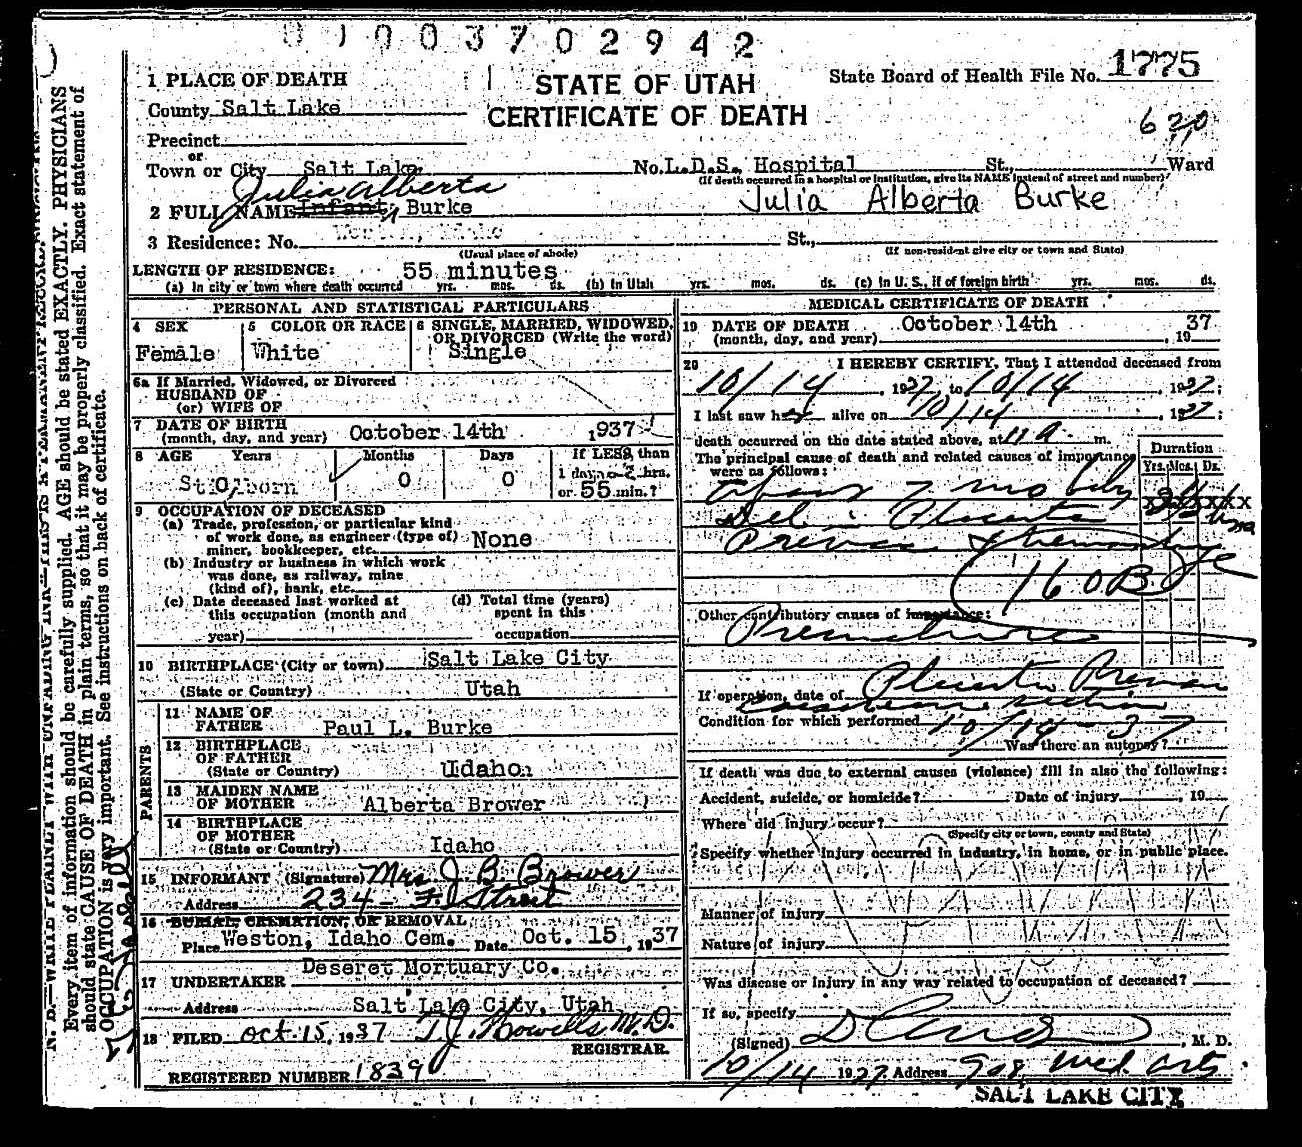 0 1 0 0 3 7 0 2 9 4 2
1 PLACE OF DEATH
STATE OF UTAH
CERTIFICATE OF DEATH
State Board of Health File No. 1775
County Salt Lake
620
Precinct
or
Town or City Salt Lake No. L.D.S. Hospital St., Ward
(If death occurred in a hospital or institution, give its NAME instead of street and number)
Julia Alberta
2 FULL NAME Infant Burke Julia Alberta Burke
3 Residence: No. St.,
(Usual place of abode) (If non-resident give city or town and State)
LENGTH OF RESIDENCE: 55 minutes
(a) In city or town where death occurred yrs. mos. ds. (b) In Utah yrs. mos. ds. (c) In U. S., if of foreign birth yrs. mos. ds.
PERSONAL AND STATISTICAL PARTICULARS
4 SEX 5 COLOR OR RACE 6 SINGLE, MARRIED, WIDOWED,
OR DIVORCED (Write the word)
Female White Single
6a If Married, Widowed, or Divorced
HUSBAND OF
(or) WIFE OF
7 DATE OF BIRTH
(month, day, and year) October 14th 1937
8 AGE Years Months Days If LESS than
1 day, hrs.
0 0 0 or 55 min.?
9 OCCUPATION OF DECEASED
(a) Trade, profession, or particular kind
of work done, as engineer (type of)
miner, bookkeeper, etc. None
(b) Industry or business in which work
was done, as railway, mine
(kind of), bank, etc.
(c) Date deceased last worked at (d) Total time (years)
this occupation (month and spent in this
year) occupation
10 BIRTHPLACE (City or town) Salt Lake City
(State or Country) Utah
PARENTS
11 NAME OF
FATHER Paul L. Burke
12 BIRTHPLACE
OF FATHER
(State or Country) Idaho
13 MAIDEN NAME
OF MOTHER Alberta Brower
14 BIRTHPLACE
OF MOTHER
(State or Country) Idaho
15 INFORMANT (Signature) Mrs. J. B. Brower
Address 234 F. Street
16 BURIAL, CREMATION, OR REMOVAL
Place Weston, Idaho Cem. Date Oct. 15, 1937
17 UNDERTAKER Deseret Mortuary Co.
Address Salt Lake City, Utah
18 FILED Oct. 15, 1937 T. J. Howells, M.D.
REGISTRAR.
REGISTERED NUMBER 1839
MEDICAL CERTIFICATE OF DEATH
19 DATE OF DEATH October 14th 37
(month, day, and year) , 19
20 I HEREBY CERTIFY, That I attended deceased from
10/14, 1937 to 10/14, 1937;
I last saw her alive on 10/14, 1937;
death occurred on the date stated above, at 11 a. m.
The principal cause of death and related causes of importance
were as follows:
Duration
Yrs. Mos. Ds.
Placenta
Previa & Hemorrhage
160B
Other contributory causes of importance:
Placenta Previa
If operation, date of
Caesarean section
Condition for which performed 10/14-37
Was there an autopsy?
If death was due to external causes (violence) fill in also the following:
Accident, suicide, or homicide? Date of injury , 19
Where did injury occur?
(Specify city or town, county and State)
Specify whether injury occurred in industry, in home, or in public place.
Manner of injury
Nature of injury
Was disease or injury in any way related to occupation of deceased?
If so, specify
(Signed) , M. D.
10/14 1937 Address Med. Arts
SALT LAKE CITY
N. B.—WRITE PLAINLY WITH UNFADING INK—THIS IS A PERMANENT RECORD.
Every item of information should be carefully supplied. AGE should be stated EXACTLY. PHYSICIANS
should state CAUSE OF DEATH in plain terms, so that it may be properly classified. Exact statement of
OCCUPATION is very important. See instructions on back of certificate.